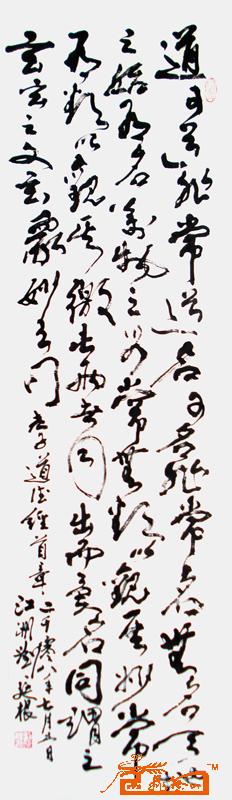 道可道非常道名可名非常名無名天地
之始有名萬物之母常無欲以觀其妙常
有欲以觀其徼此兩者同出而異名同謂之
玄玄之又玄眾妙之門
老子道德經首章
二千零八年七月五日
江洲 延根